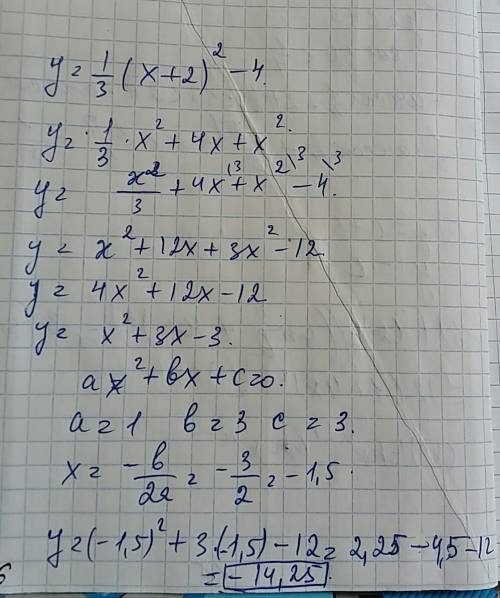 y = 1/3 (x+2)² - 4.
y = 1/3 · x² + 4x + x².
y = x²/3 + 4x\3 + x²\3 - 4\3.
y = x² + 12x + 3x² - 12
y = 4x² + 12x - 12
y = x² + 3x - 3.
ax² + bx + c = 0.
a = 1 b = 3 c = 3.
x = -b/2a = -3/2 = -1,5.
y = (-1,5)² + 3·(-1,5) - 12 = 2,25 - 4,5 - 12
= -14,25.